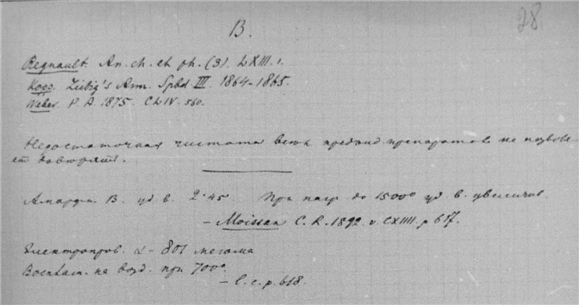 28
B.
Regnault An. ch. et ph. (3). LXIII. 1.
Kopp. Liebig's Ann. Spbd III. 1864-1865.
Weber. P. A. 1875. CLIV. 560.
Недостаточная чистота всех прежних препаратов не позволя-
ет повторят.
Аморфн B. уд. в. 2.45 При нагр до 1500° уд в. увеличив.
- Moissan C. R. 1892. v. CXIIII. p. 617.
Електропров. 801 мегома
Воспл. на возд. при 700°
- l. c. p. 618.